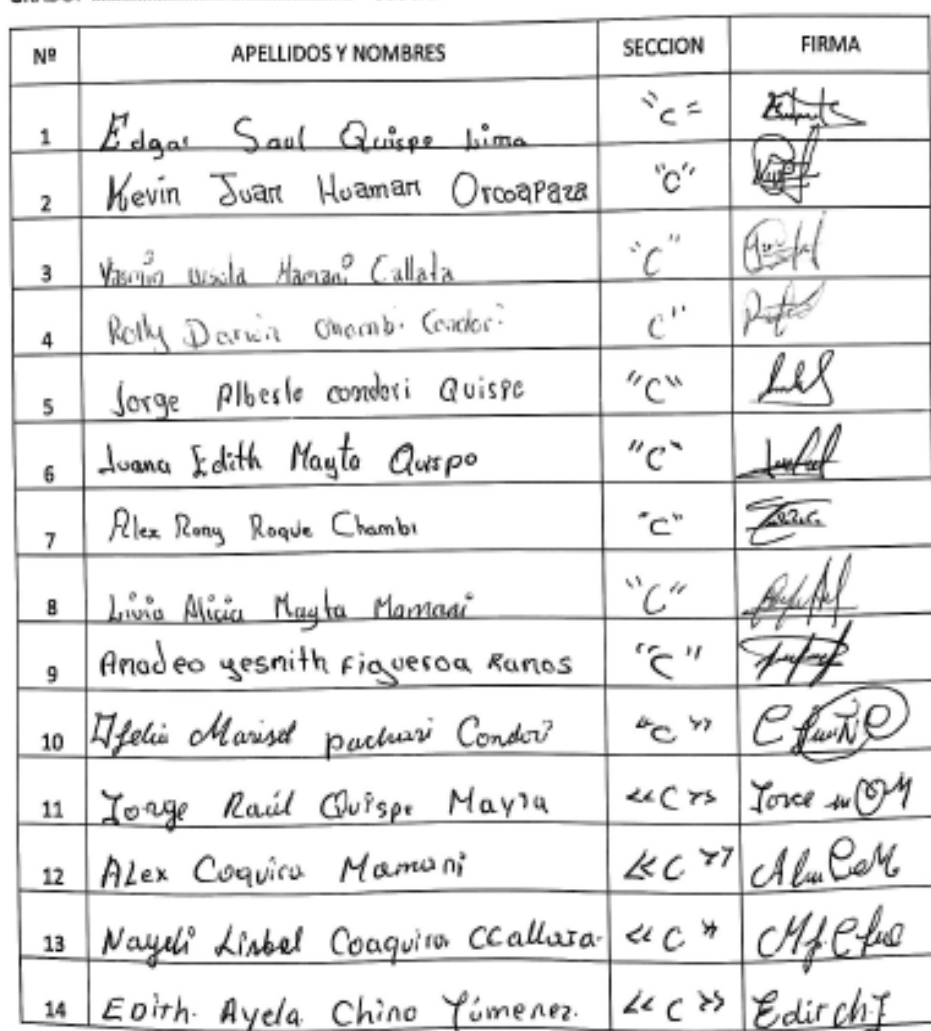 Nº APELLIDOS Y NOMBRES SECCION FIRMA
1 Edgar Saul Quispe Lima "C"
2 Kevin Juan Huaman Orcoapaza "C"
3 Yasmin Ursula Mamani Callata "C"
4 Rolly Darwin Chambi Condori C"
5 Jorge Alberto condori Quispe "C"
6 Juana Edith Mayta Quispo "C"
7 Alex Rony Roque Chambi "C"
8 Livia Alicia Mayta Mamani "C"
9 Amadeo yesmith Figueroa Ramos "C"
10 Ofelia Marisel pachari Condori "C"
11 Jorge Raúl Quispe Mayta "C"
12 ALex Coquira Mamani "C"
13 Nayeli Lisbel Coaquira CCallata "C"
14 Edith. Ayela Chino Yimenez. "C" Edit ch J